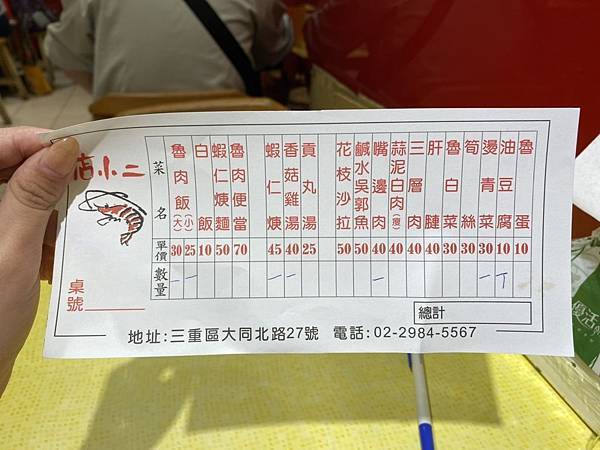 店小二
桌號
菜名
單價
數量
魯肉飯(大) 30 一
(小) 25 一
白飯 10
蝦仁焿麵 50
魯肉便當 70
蝦仁焿 45 一
香菇雞湯 40 一
貢丸湯 25
花枝沙拉 50
鹹水吳郭魚 50
嘴邊肉 40 一
蒜泥白肉(瘦) 40
三層肉 40
肝腱 40
魯白菜 30
筍絲 30
燙青菜 30 一
油豆腐 10 丅
魯蛋 10
總計
地址:三重區大同北路27號 電話:02-2984-5567
優活